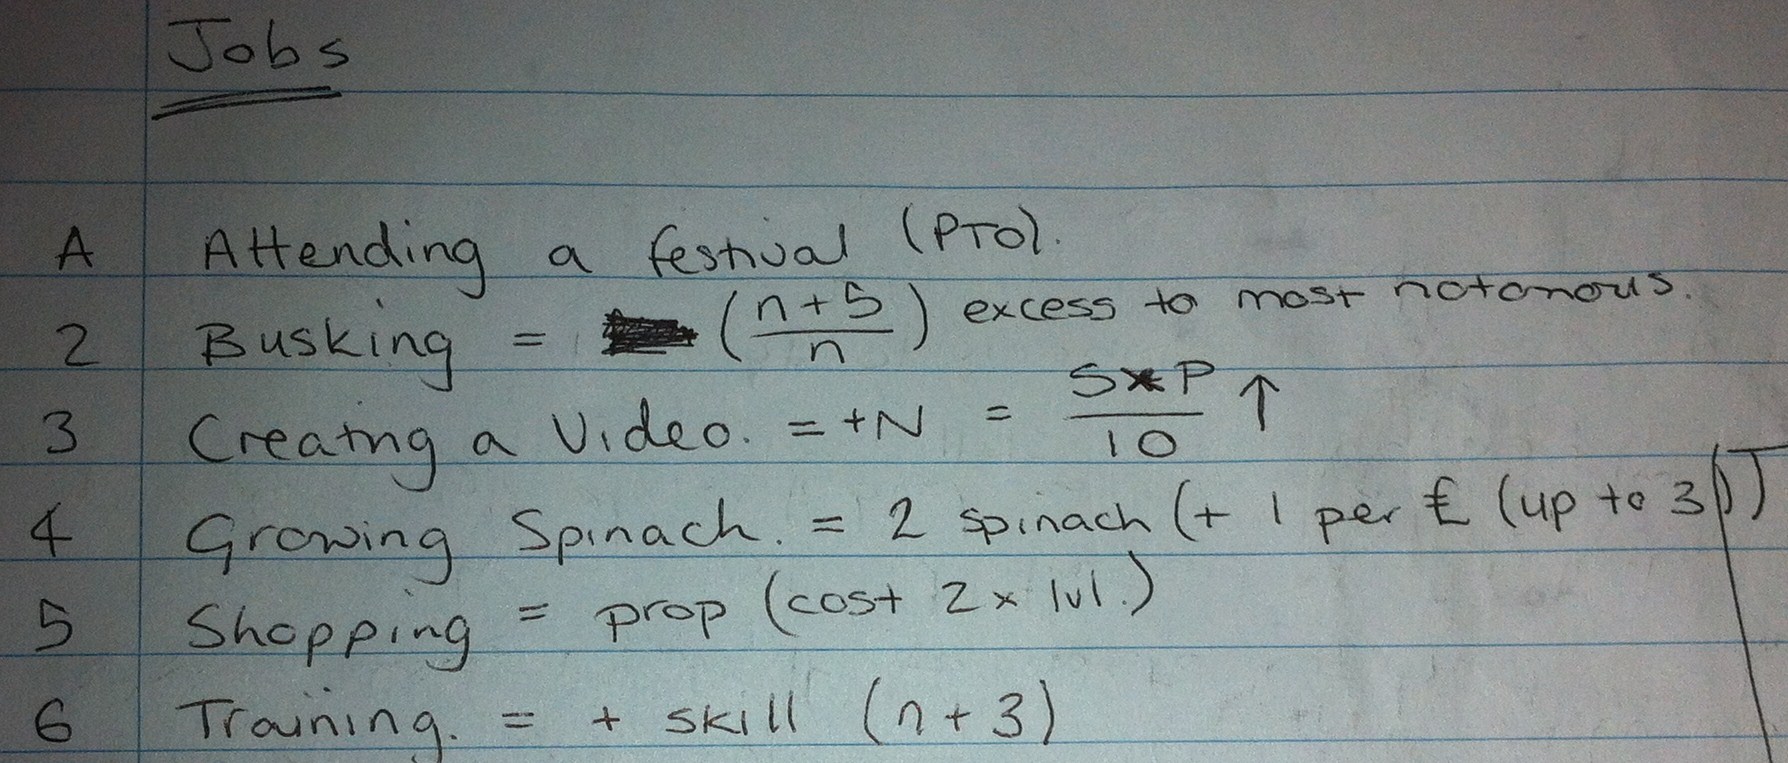 Jobs
A Attending a festival (PTO).
2 Busking = (n+5/n) excess to most notorious.
3 Creating a Video. = +N = S*P/10 ↑
4 Growing Spinach. = 2 spinach (+ 1 per £ (up to 3))
5 Shopping = prop (cost 2 x lvl.)
6 Training. = + skill (n+3)